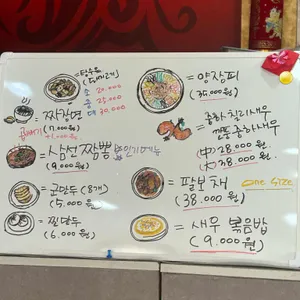 탕수육
소 20,000
중 25,000
대 30,000
= 짜장면
(7,000원)
곱빼기 +1,000원
= 삼선짬뽕 인기메뉴
(9,000원)
= 군만두 (8개)
(5,000원)
= 찐만두
(6,000원)
= 양장피
(35,000원)
= 중하칠리새우
깐풍중하새우
(中) 28,000원
(大) 38,000원
= 팔보채 one size
(38,000원)
= 새우볶음밥
(9,000원)